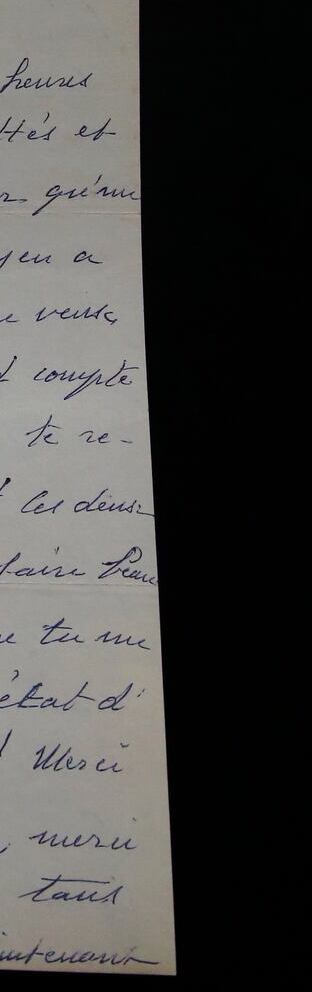 heures
ttés et
yen a
compte
te re-
les deux
faire beau
tu me
état d'
! Merci
, merci
tant
intenant